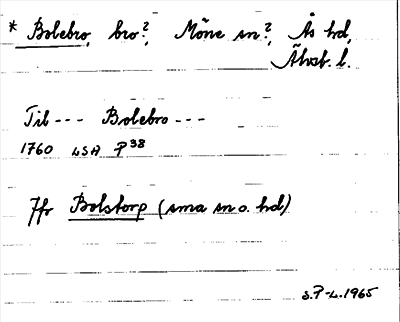 * Bolebro, bro?, Möne sn?, Ås hd,
Älvsb. l.
Till --- Bolebro ---
1760 LSA P 38
Jfr Bolstorp (sma sn o. hd)
S.P-L. 1965